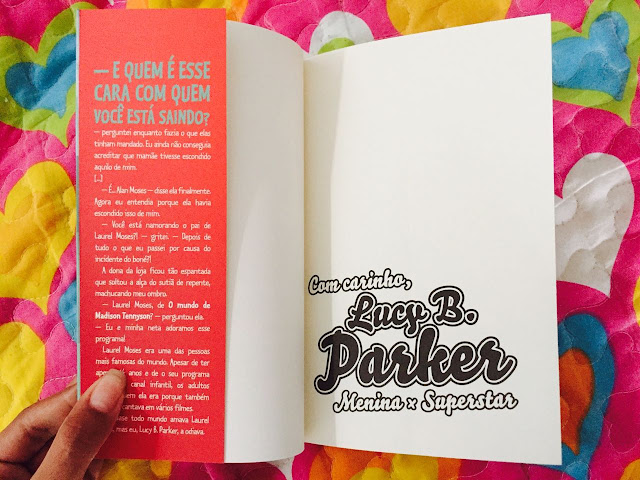 — E QUEM É ESSE
CARA COM QUEM
VOCÊ ESTÁ SAINDO?
— perguntei enquanto fazia o que elas
tinham mandado. Eu ainda não conseguia
acreditar que mamãe tivesse escondido
aquilo de mim.
[...]
— É... Alan Moses — disse ela finalmente.
Agora eu entendia porque ela havia
escondido isso de mim.
— Você está namorando o pai de
Laurel Moses?! — gritei. — Depois de
tudo o que eu passei por causa do
incidente do boné?!
A dona da loja ficou tão espantada
que soltou a alça do sutiã de repente,
machucando meu ombro.
— Laurel Moses, de O mundo de
Madison Tennyson? — perguntou ela.
— Eu e minha neta adoramos esse
programa!
Laurel Moses era uma das pessoas
mais famosas do mundo. Apesar de ter
anos e de o seu programa
canal infantil, os adultos
quem ela era porque também
cantava em vários filmes.
ase todo mundo amava Laurel
mas eu, Lucy B. Parker, a odiava.
Com carinho,
Lucy B.
Parker
Menina x Superstar